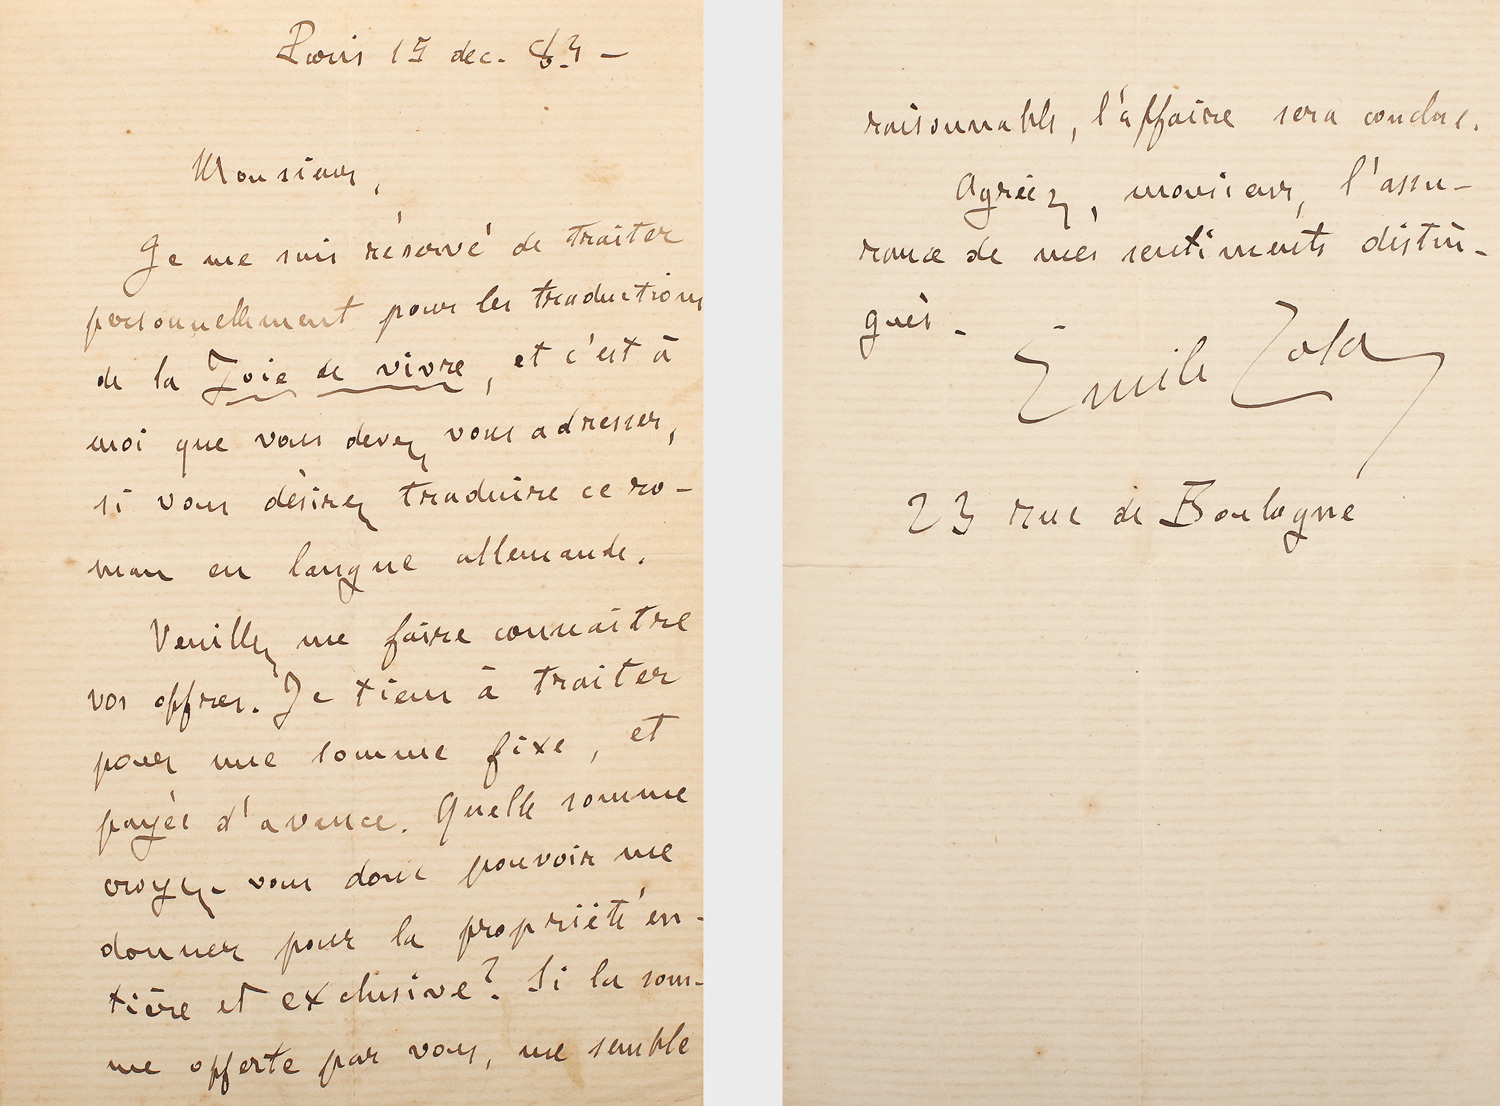 Paris 15 dec. 83 –
Monsieur,
Je me suis réservé de traiter
personnellement pour les traductions
de la Joie de vivre, et c'est à
moi que vous devez vous adresser,
si vous désirez traduire ce ro-
man en langue allemande.
Veuillez me faire connaître
vos offres. Je tiens à traiter
pour une somme fixe, et
payée d'avance. Quelle somme
croyez-vous donc pouvoir me
donner pour la propriété en-
tière et exclusive? Si la som-
me offerte par vous, me semble
raisonnable, l'affaire sera conclue.
Agréez, monsieur, l'assu-
rance de mes sentiments distin-
gués.
Emile Zola
23 rue de Boulogne